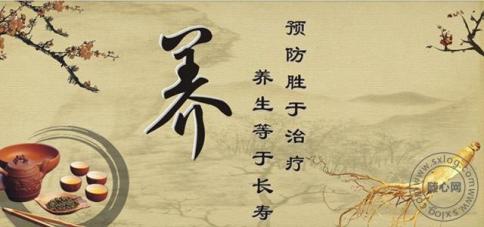 养
预防胜于治疗
养生等于长寿
随心网
www.sxlog.com